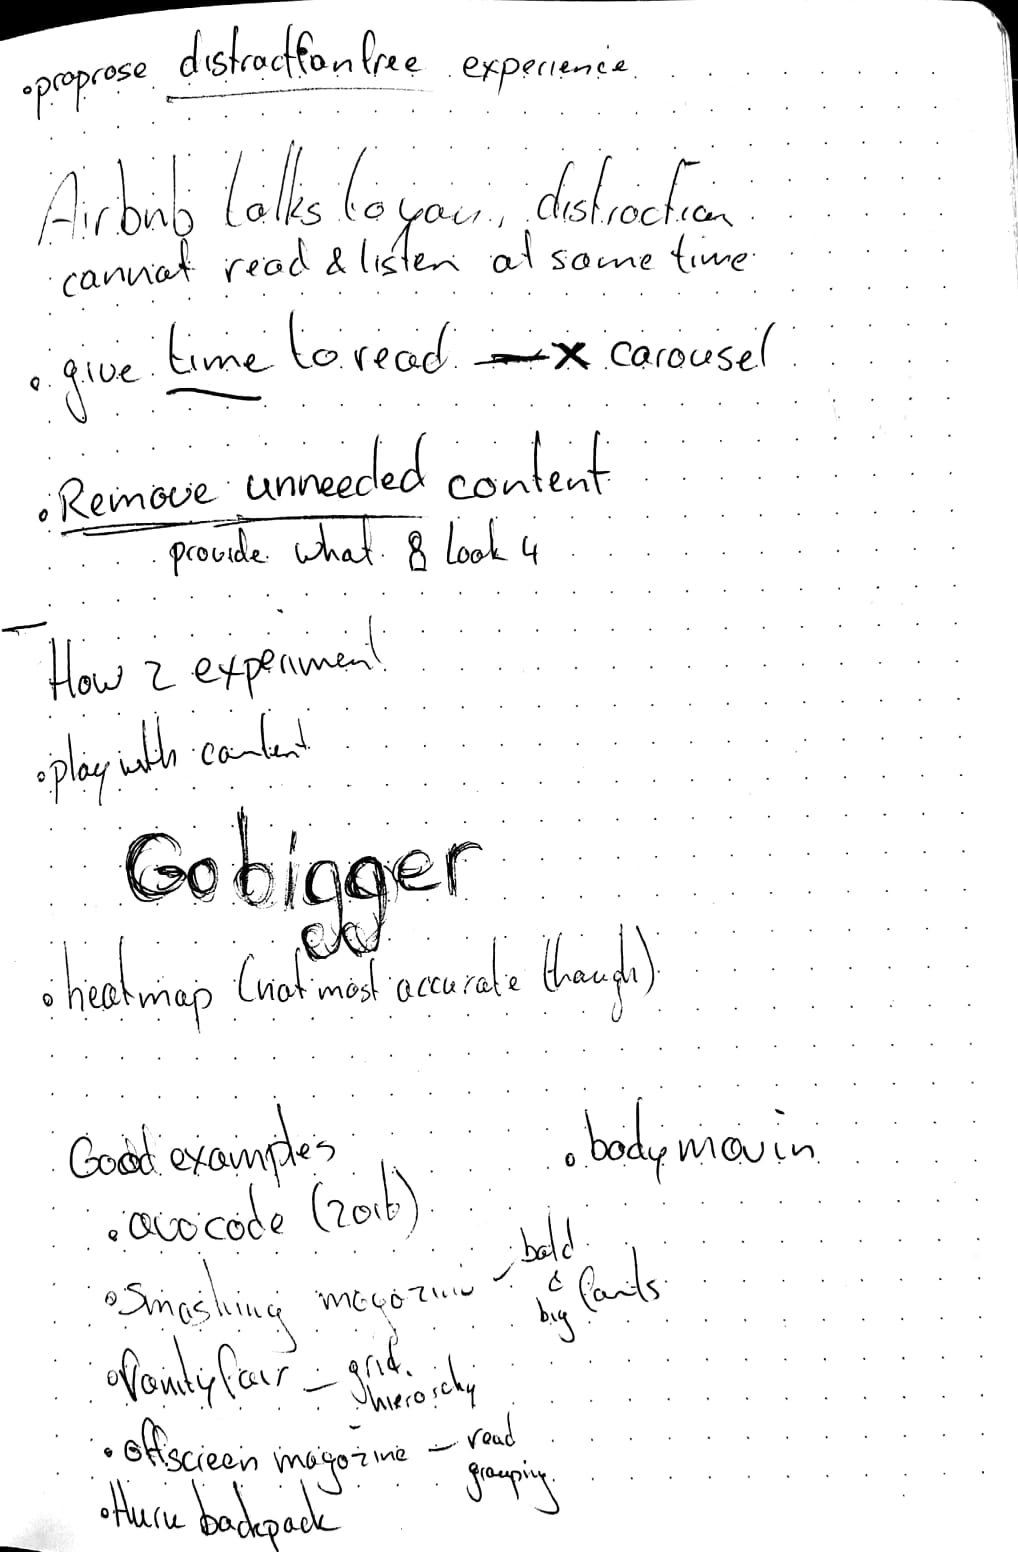 • proprose distractionfree experience
Airbnb talks to you, distraction
cannot read & listen at same time
• give time to read —x carousel
• Remove unneeded content
provide what & look 4
How 2 experiment
• play with content
Go bigger
• heatmap (not most accurate though)
Good examples
• bodymovin
• avocode (2016)
• Smashing magazine – bold & big fonts
• Vanityfair – grid, hierarchy
• Offscreen magazine – read grouping
• Huru backpack